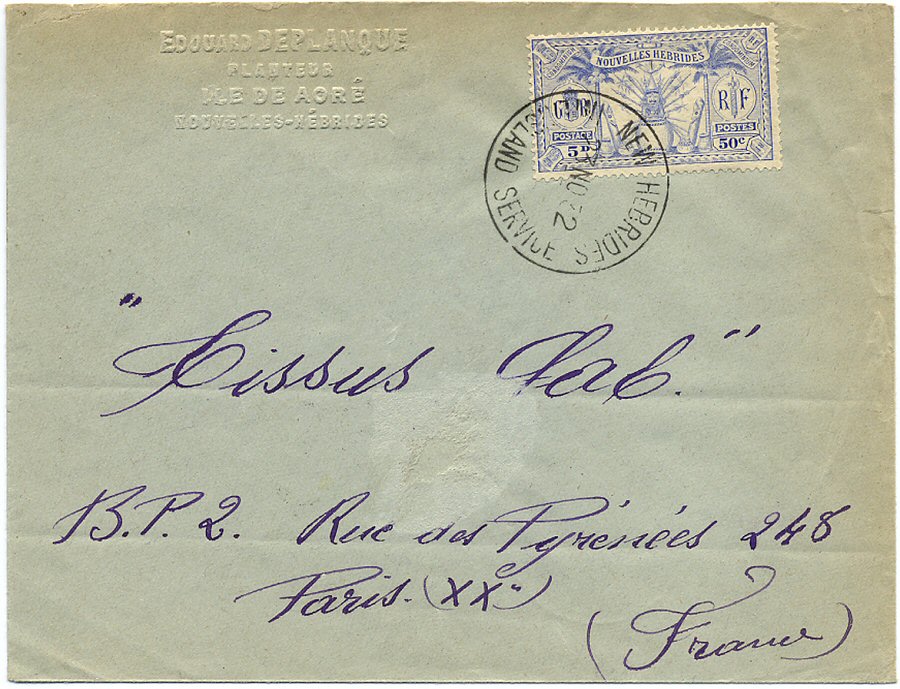 EDOUARD DEPLANQUE
PLANTEUR
ILE DE AORÉ
NOUVELLES-HÉBRIDES
NOUVELLES HEBRIDES
RF
POSTAGE
POSTES
5D
50c
NEW HEBRIDES
SERVICE
NO 32
"Tissus
B.P. 2. Rue des Pyrénées 248
Paris. (XXe)
(France)